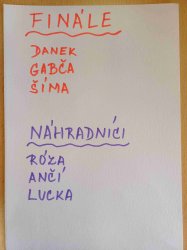 FINÁLE
DANEK
GABČA
ŠÍMA
NÁHRADNÍCI
RÓZA
ANČÍ
LUCKA